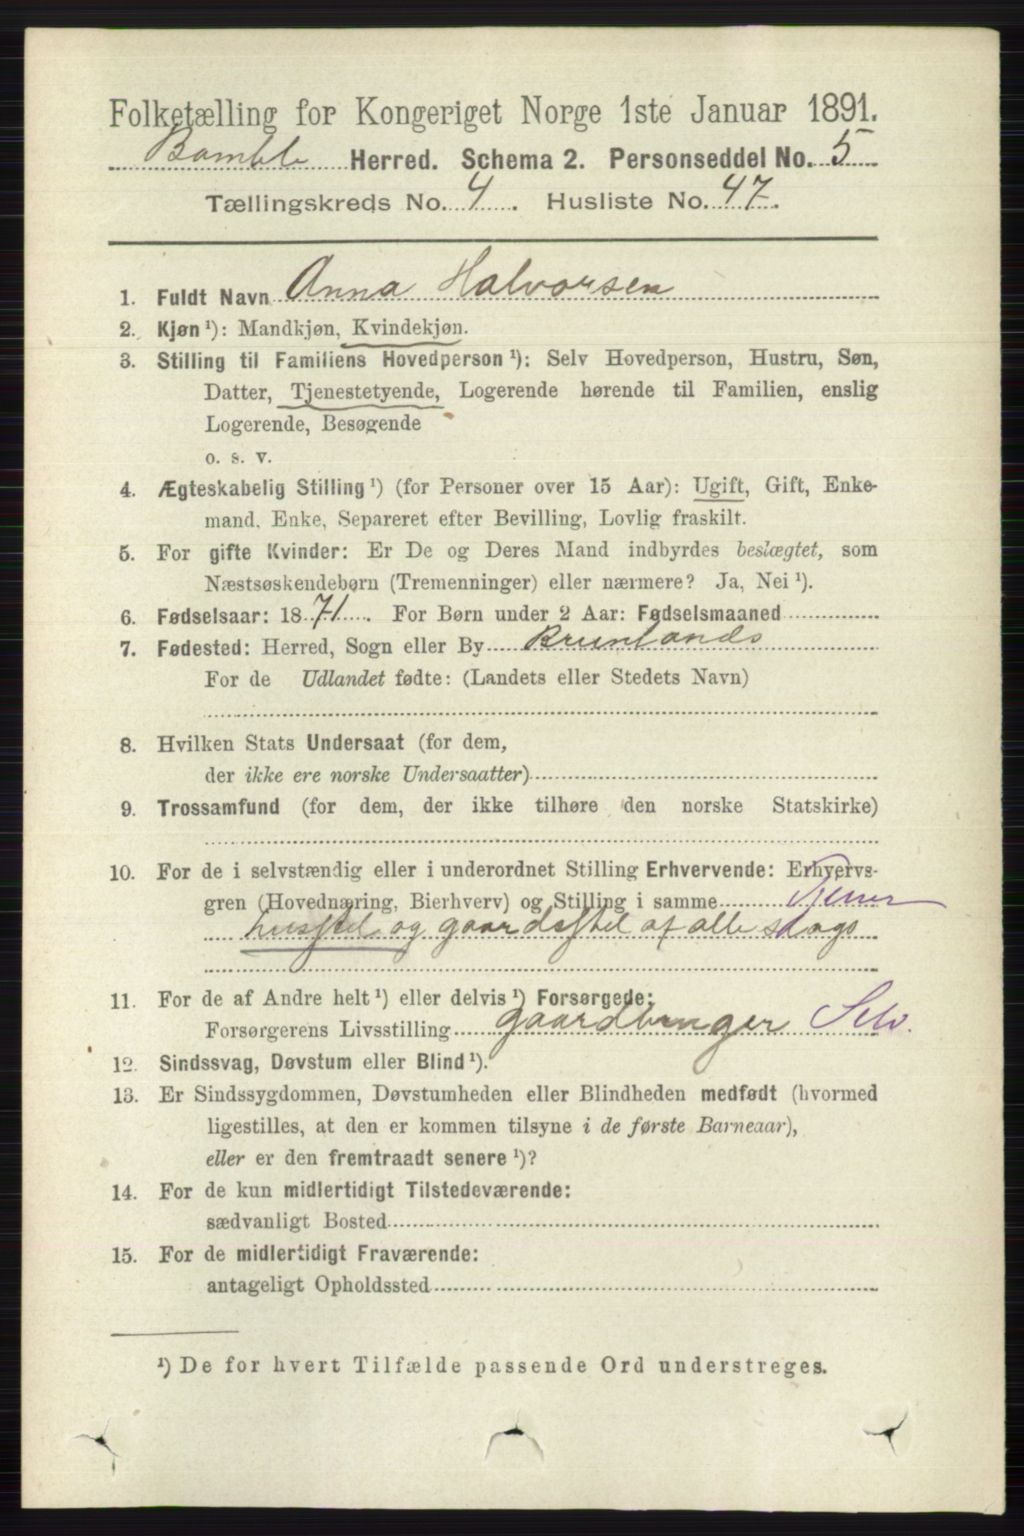 Folketælling for Kongeriget Norge 1ste Januar 1891.
Bamble Herred. Schema 2. Personseddel No. 5
Tællingskreds No. 4. Husliste No. 47.
1. Fuldt Navn Anna Halvorsen
2. Kjøn ¹): Mandkjøn, Kvindekjøn.
3. Stilling til Familiens Hovedperson ¹): Selv Hovedperson, Hustru, Søn,
Datter, Tjenestetyende, Logerende hørende til Familien, enslig
Logerende, Besøgende
o. s. v.
4. Ægteskabelig Stilling ¹) (for Personer over 15 Aar): Ugift, Gift, Enke-
mand, Enke, Separeret efter Bevilling, Lovlig fraskilt.
5. For gifte Kvinder: Er De og Deres Mand indbyrdes beslægtet, som
Næstsøskendebørn (Tremenninger) eller nærmere? Ja, Nei ¹).
6. Fødselsaar: 1871. For Børn under 2 Aar: Fødselsmaaned
7. Fødested: Herred, Sogn eller By Brunlands
For de Udlandet fødte: (Landets eller Stedets Navn)
8. Hvilken Stats Undersaat (for dem,
der ikke ere norske Undersaatter)
9. Trossamfund (for dem, der ikke tilhøre den norske Statskirke)
10. For de i selvstændig eller i underordnet Stilling Erhvervende: Erhvervs-
gren (Hovednæring, Bierhverv) og Stilling i samme Tjener
husstel og gaardsstel af alle slags
11. For de af Andre helt ¹) eller delvis ¹) Forsørgede:
Forsørgerens Livsstilling gaardbruger Selv.
12. Sindssvag, Døvstum eller Blind ¹).
13. Er Sindssygdommen, Døvstumheden eller Blindheden medfødt (hvormed
ligestilles, at den er kommen tilsyne i de første Barneaar),
eller er den fremtraadt senere ¹)?
14. For de kun midlertidigt Tilstedeværende:
sædvanligt Bosted
15. For de midlertidigt Fraværende:
antageligt Opholdssted
¹) De for hvert Tilfælde passende Ord understreges.